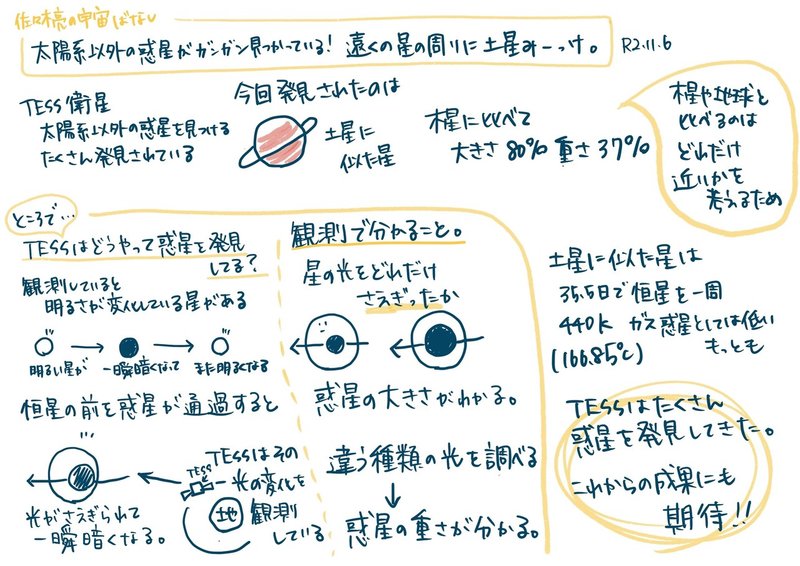 佐々木亮の宇宙ばなし
太陽系以外の惑星がガンガン見つかっている! 遠くの星の周りに土星みーっけ。
R2.11.6
TESS衛星
太陽系以外の惑星を見つける
たくさん発見されている
今回発見されたのは
土星に
似た星
木星に比べて
大きさ 80% 重さ 37%
木星や地球と
比べるのは
どれだけ
近いかを
考えるため
ところで…
TESSはどうやって惑星を発見
してる?
観測していると
明るさが変化している星がある
明るい星が
一瞬暗くなって
また明るくなる
恒星の前を惑星が通過すると
光がさえぎられて
一瞬暗くなる。
TESS
TESSはその
光の変化を
観測
している
地
観測で分かること。
星の光をどれだけ
さえぎったか
惑星の大きさがわかる。
違う種類の光を調べる
惑星の重さが分かる。
土星に似た星は
35.5日で恒星を一周
440K ガス惑星としては低い
(166.85℃)
もっとも
TESSはたくさん
惑星を発見してきた。
これからの成果にも
期待!!